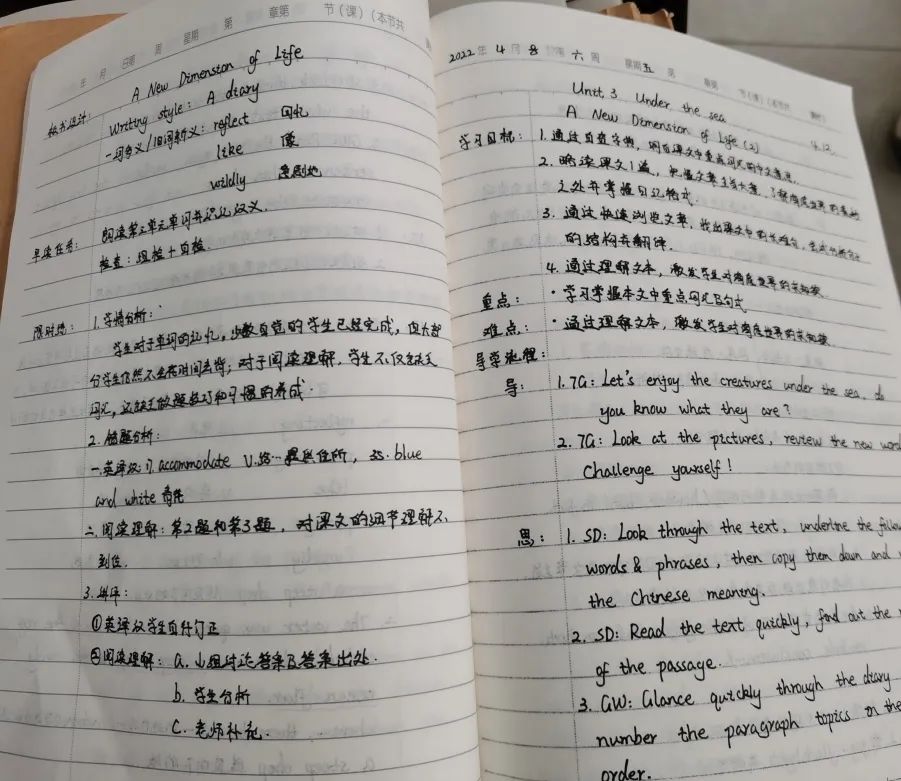 年 月 日第 周 星期 第 章第 节(课)(本节共
板书设计: A New Dimension of Life
Writing style: A diary
一词多义/旧词新义: reflect 回礼
like 像
wildly 急剧地
早读任务: 朗读第三单元单词并识记汉义.
检查: 组检+自检
限时练: 1. 学情分析:
学生对于单词的记忆,少数自觉的学生已经完成,但大部
分学生仍然不会花时间去背; 对于阅读理解,学生不仅含缺乏
词汇,还缺乏做题技巧和习惯的养成.
2. 错题分析:
一.英译汉: 7. accommodate v.给…提供住所, 35. blue
and white 青花
二.阅读理解: 第2题和第3题,对课文的细节理解不
到位.
3. 讲评:
①英译汉学生自行订正
②阅读理解: a. 小组讨论答案及答案出处.
b. 学生分析
c. 老师补充.
2022年 4月 8日第 六 周 星期五 第 章第 节(课)(本节共
Unit 3 Under the sea
A New Dimension of Life (2)
学习目标: 1. 通过自查字典,明白课文中重点词汇的中文意思.
2. 略读课文1遍,把握文章主旨大意,了解海底世界的
之处并掌握日记格式.
3. 通过快速浏览文章,找出课文中的长难句,尝试分析句子
的结构并翻译.
4. 通过理解文本,激发学生对海底世界的求知欲.
重点: · 学习掌握本文中重点词汇及句式
难点: · 通过理解文本,激发学生对海底世界的求知欲
导学流程:
导: 1. TG: Let's enjoy the creatures under the sea, do
you know what they are?
2. TG: Look at the pictures, review the new
Challenge yourself!
思: 1. SD: Look through the text, underline the
words & phrases, then copy them down and
the Chinese meaning.
2. SD: Read the text quickly, find out the
of the passage.
3. GW: Glance quickly through the diary
number the paragraph topics in the
order.